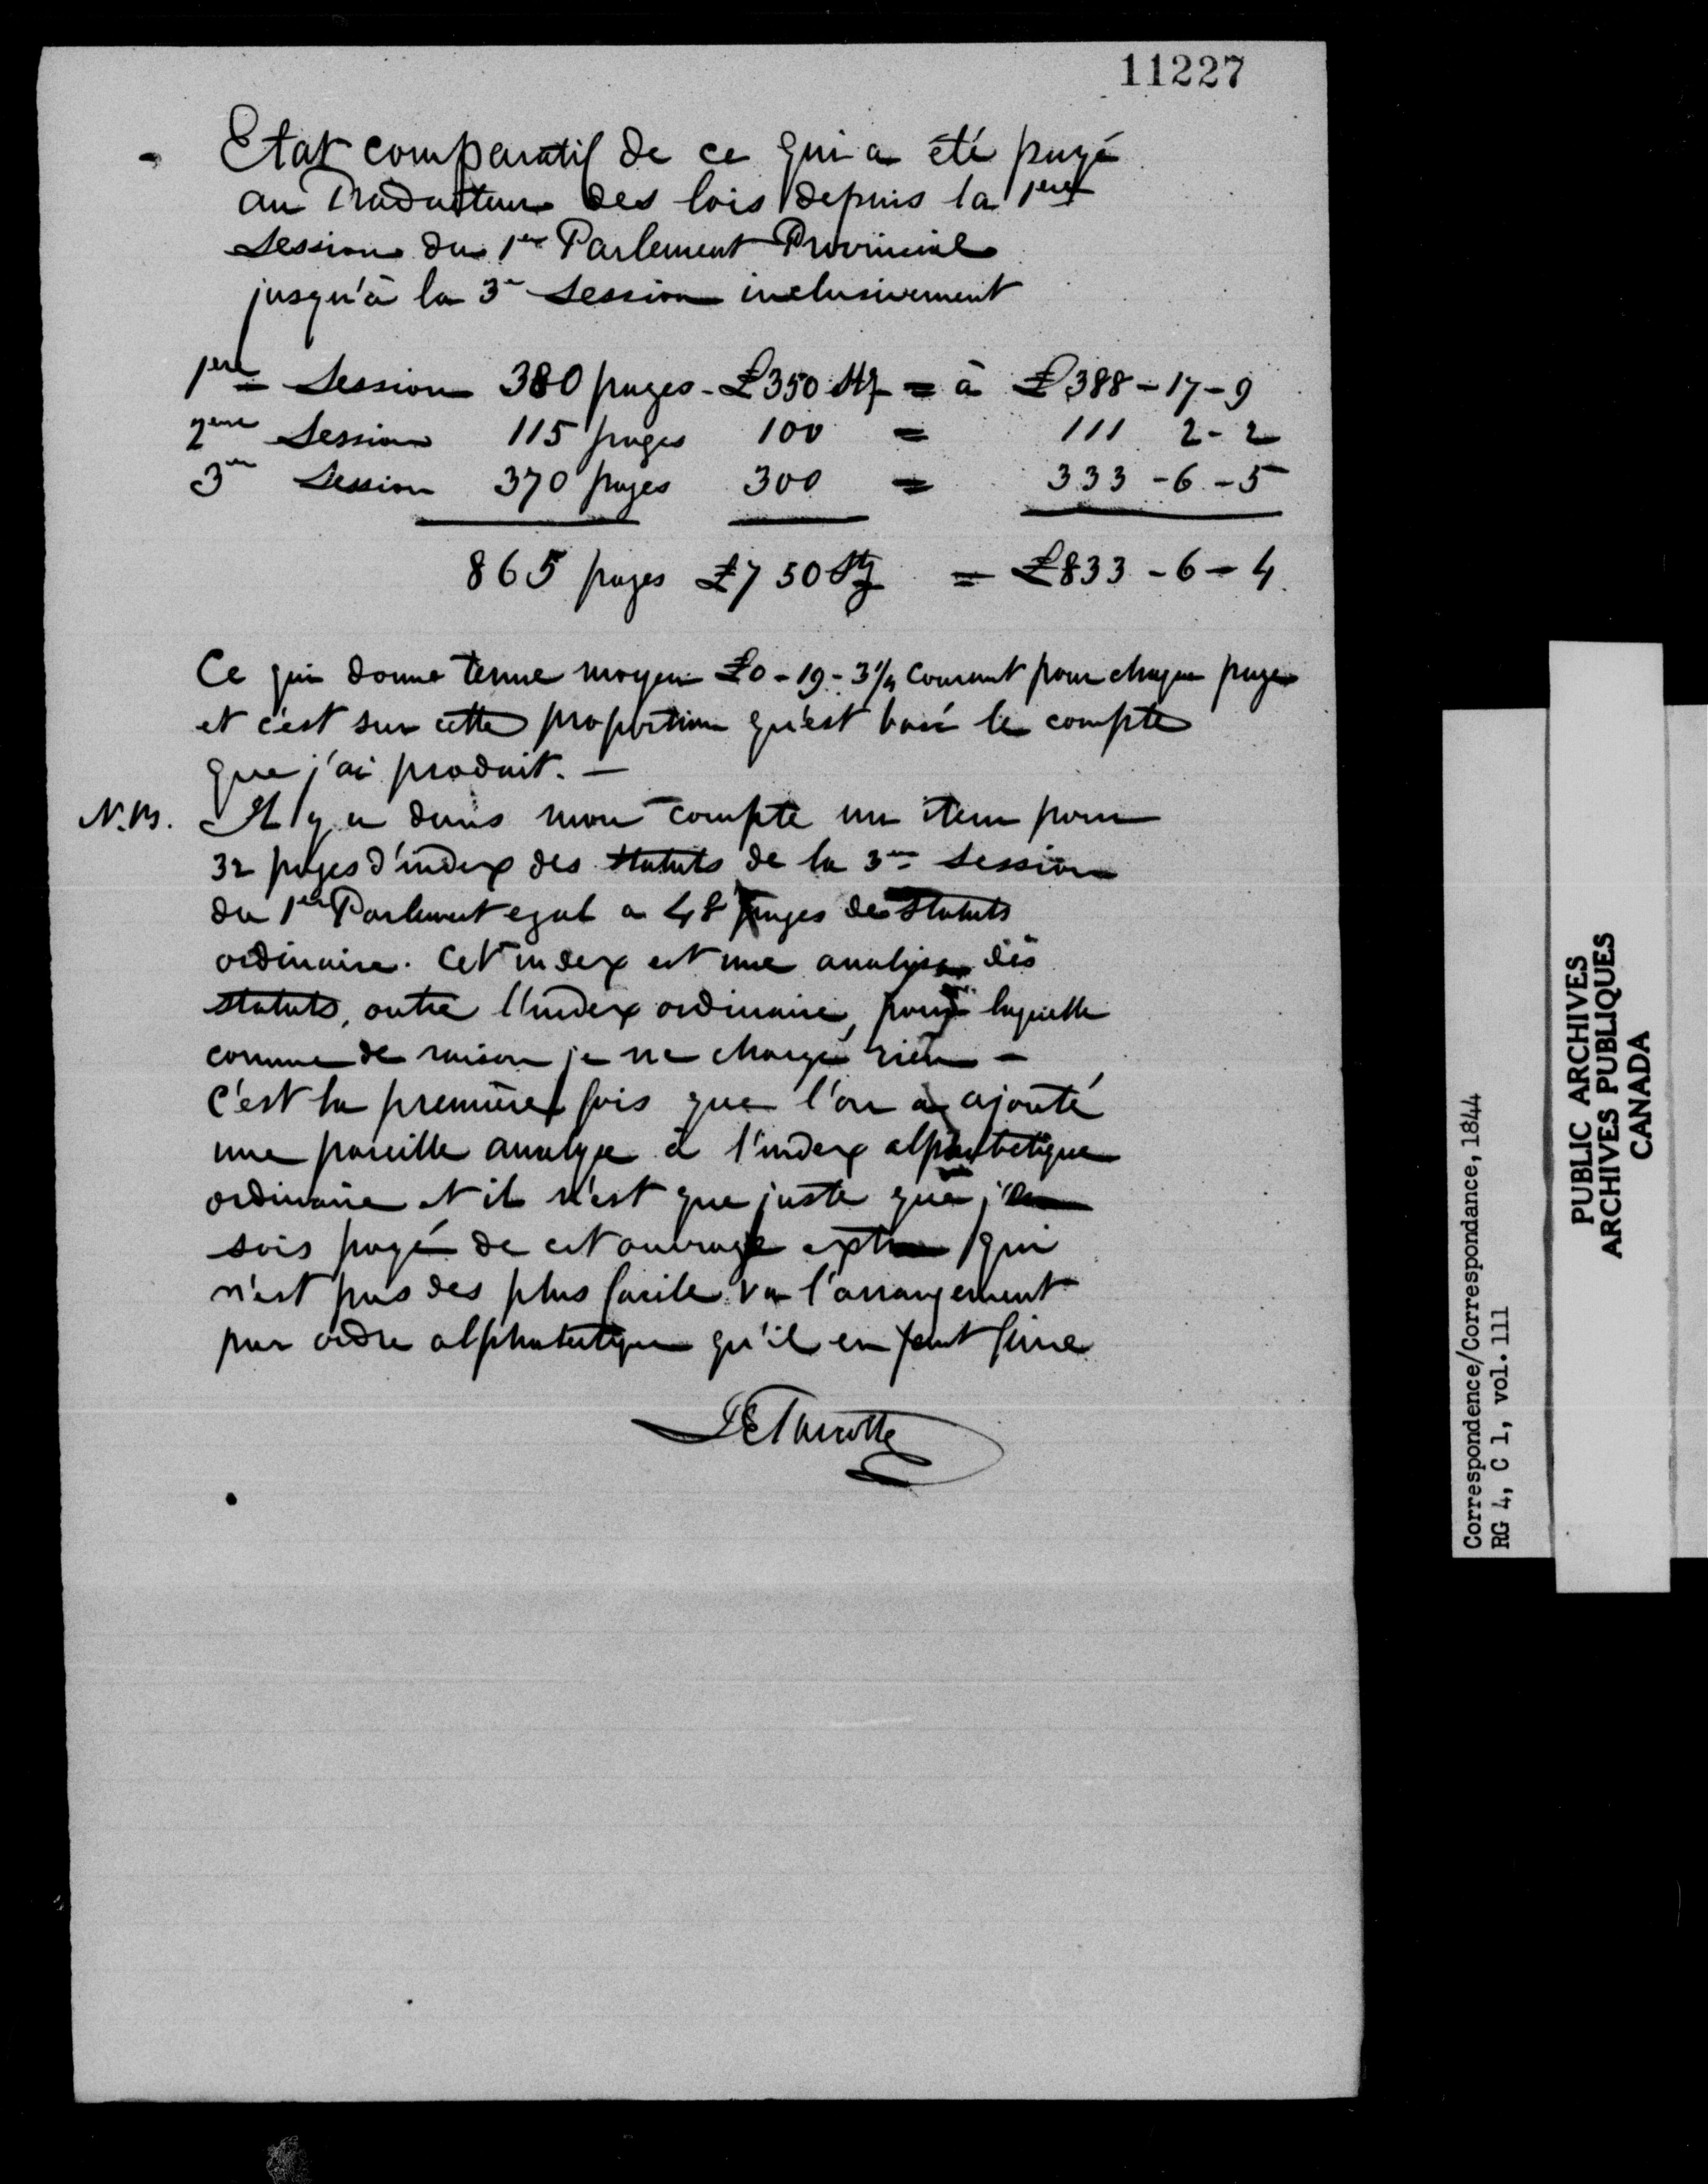 11227
Etat comparatif de ce qui a été payé
au Traducteur des lois depuis la 1ere
Session du 1er Parlement Provincial
jusqu'à la 3e Session inclusivement
1ere Session 380 pages - £350 Stg = à £388-17-9
2eme Session 115 pages 100 = 111 2-2
3me Session 370 pages 300 = 333-6-5
865 pages £750 Stg = £833-6-4
Ce qui donne terme moyen £0-19-3¼ courant pour chaque page
et c'est sur cette proportion qu'est basé le compte
que j'ai produit. —
N.B. Il y a dans mon compte un item pour
32 pages d'index des statuts de la 3me Session
du 1er Parlement egal a 48 pages des statuts
ordinaire. Cet index est une analyse des
statuts, outre l'index ordinaire, pour laquelle
comme de raison je ne charge rien —
C'est la première fois que l'on a ajouté
une pareille analyse à l'index alphabetique
ordinaire et il n'est que juste que j'en
sois payé de cet ouvrage extra qui
n'est pas des plus facile vu l'arrangement
par ordre alphabetique qu'il en faut faire
Correspondence/Correspondance, 1844
RG 4, C 1, vol. 111
PUBLIC ARCHIVES
ARCHIVES PUBLIQUES
CANADA